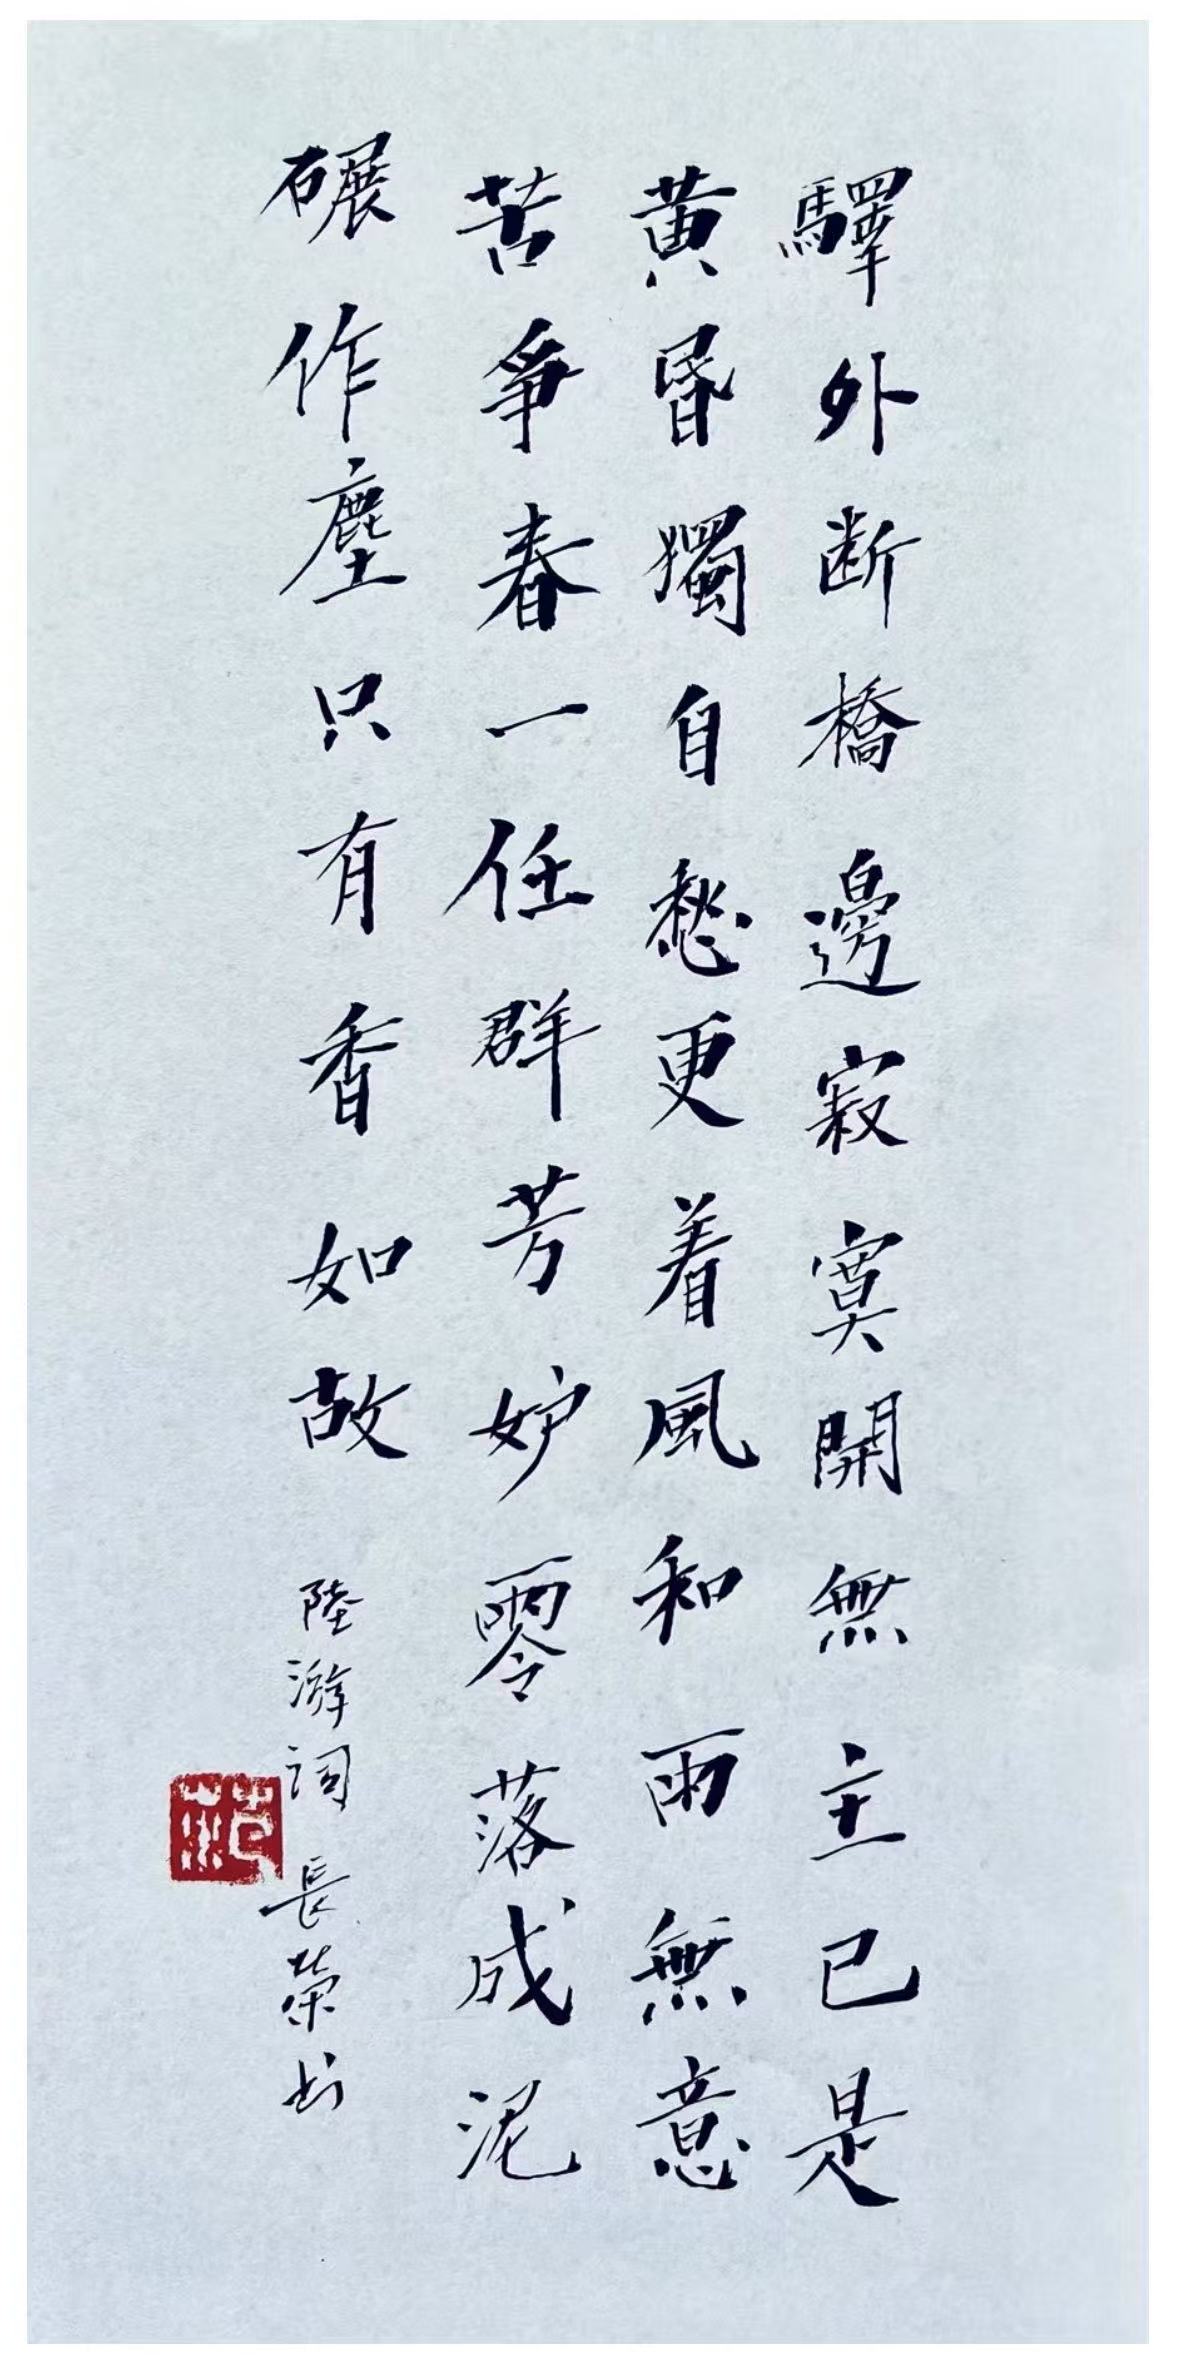 驛外断橋邊寂寞開無主已是
黄昏獨自愁更着風和雨無意
苦爭春一任群芳妒零落成泥
碾作塵只有香如故
陸游词 長荣书